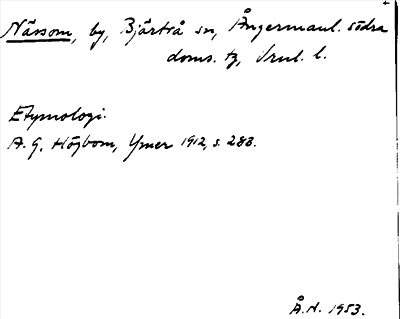 Nässom, by, Bjärtrå sn, Ångermanl. södra
doms. tg, Vnl. l.
Etymologi.
A. G. Högbom, Ymer 1912, s. 283.
Å. N. 1953.